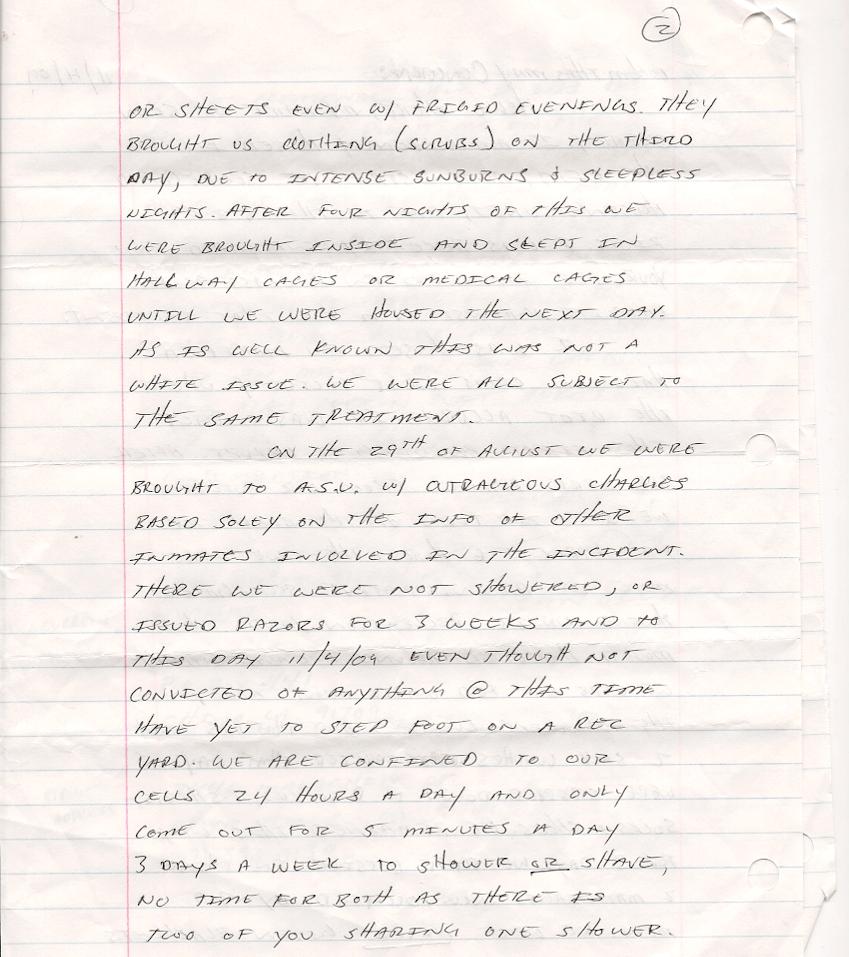 2
OR SHEETS EVEN W/ FRIGID EVENINGS. THEY
BROUGHT US CLOTHING (SCRUBS) ON THE THIRD
DAY, DUE TO INTENSE SUNBURNS & SLEEPLESS
NIGHTS. AFTER FOUR NIGHTS OF THIS WE
WERE BROUGHT INSIDE AND SLEPT IN
HALLWAY CAGES OR MEDICAL CAGES
UNTILL WE WERE HOUSED THE NEXT DAY.
AS IS WELL KNOWN THIS WAS NOT A
WHITE ISSUE. WE WERE ALL SUBJECT TO
THE SAME TREATMENT.
ON THE 29TH OF AUGUST WE WERE
BROUGHT TO A.S.U. W/ OUTRAGEOUS CHARGES
BASED SOLEY ON THE INFO OF OTHER
INMATES INVOLVED IN THE INCIDENT.
THERE WE WERE NOT SHOWERED, OR
ISSUED RAZORS FOR 3 WEEKS AND TO
THIS DAY 11/4/09 EVEN THOUGH NOT
CONVICTED OF ANYTHING @ THIS TIME
HAVE YET TO STEP FOOT ON A REC
YARD. WE ARE CONFINED TO OUR
CELLS 24 HOURS A DAY AND ONLY
COME OUT FOR 5 MINUTES A DAY
3 DAYS A WEEK TO SHOWER OR SHAVE,
NO TIME FOR BOTH AS THERE IS
TWO OF YOU SHARING ONE SHOWER.